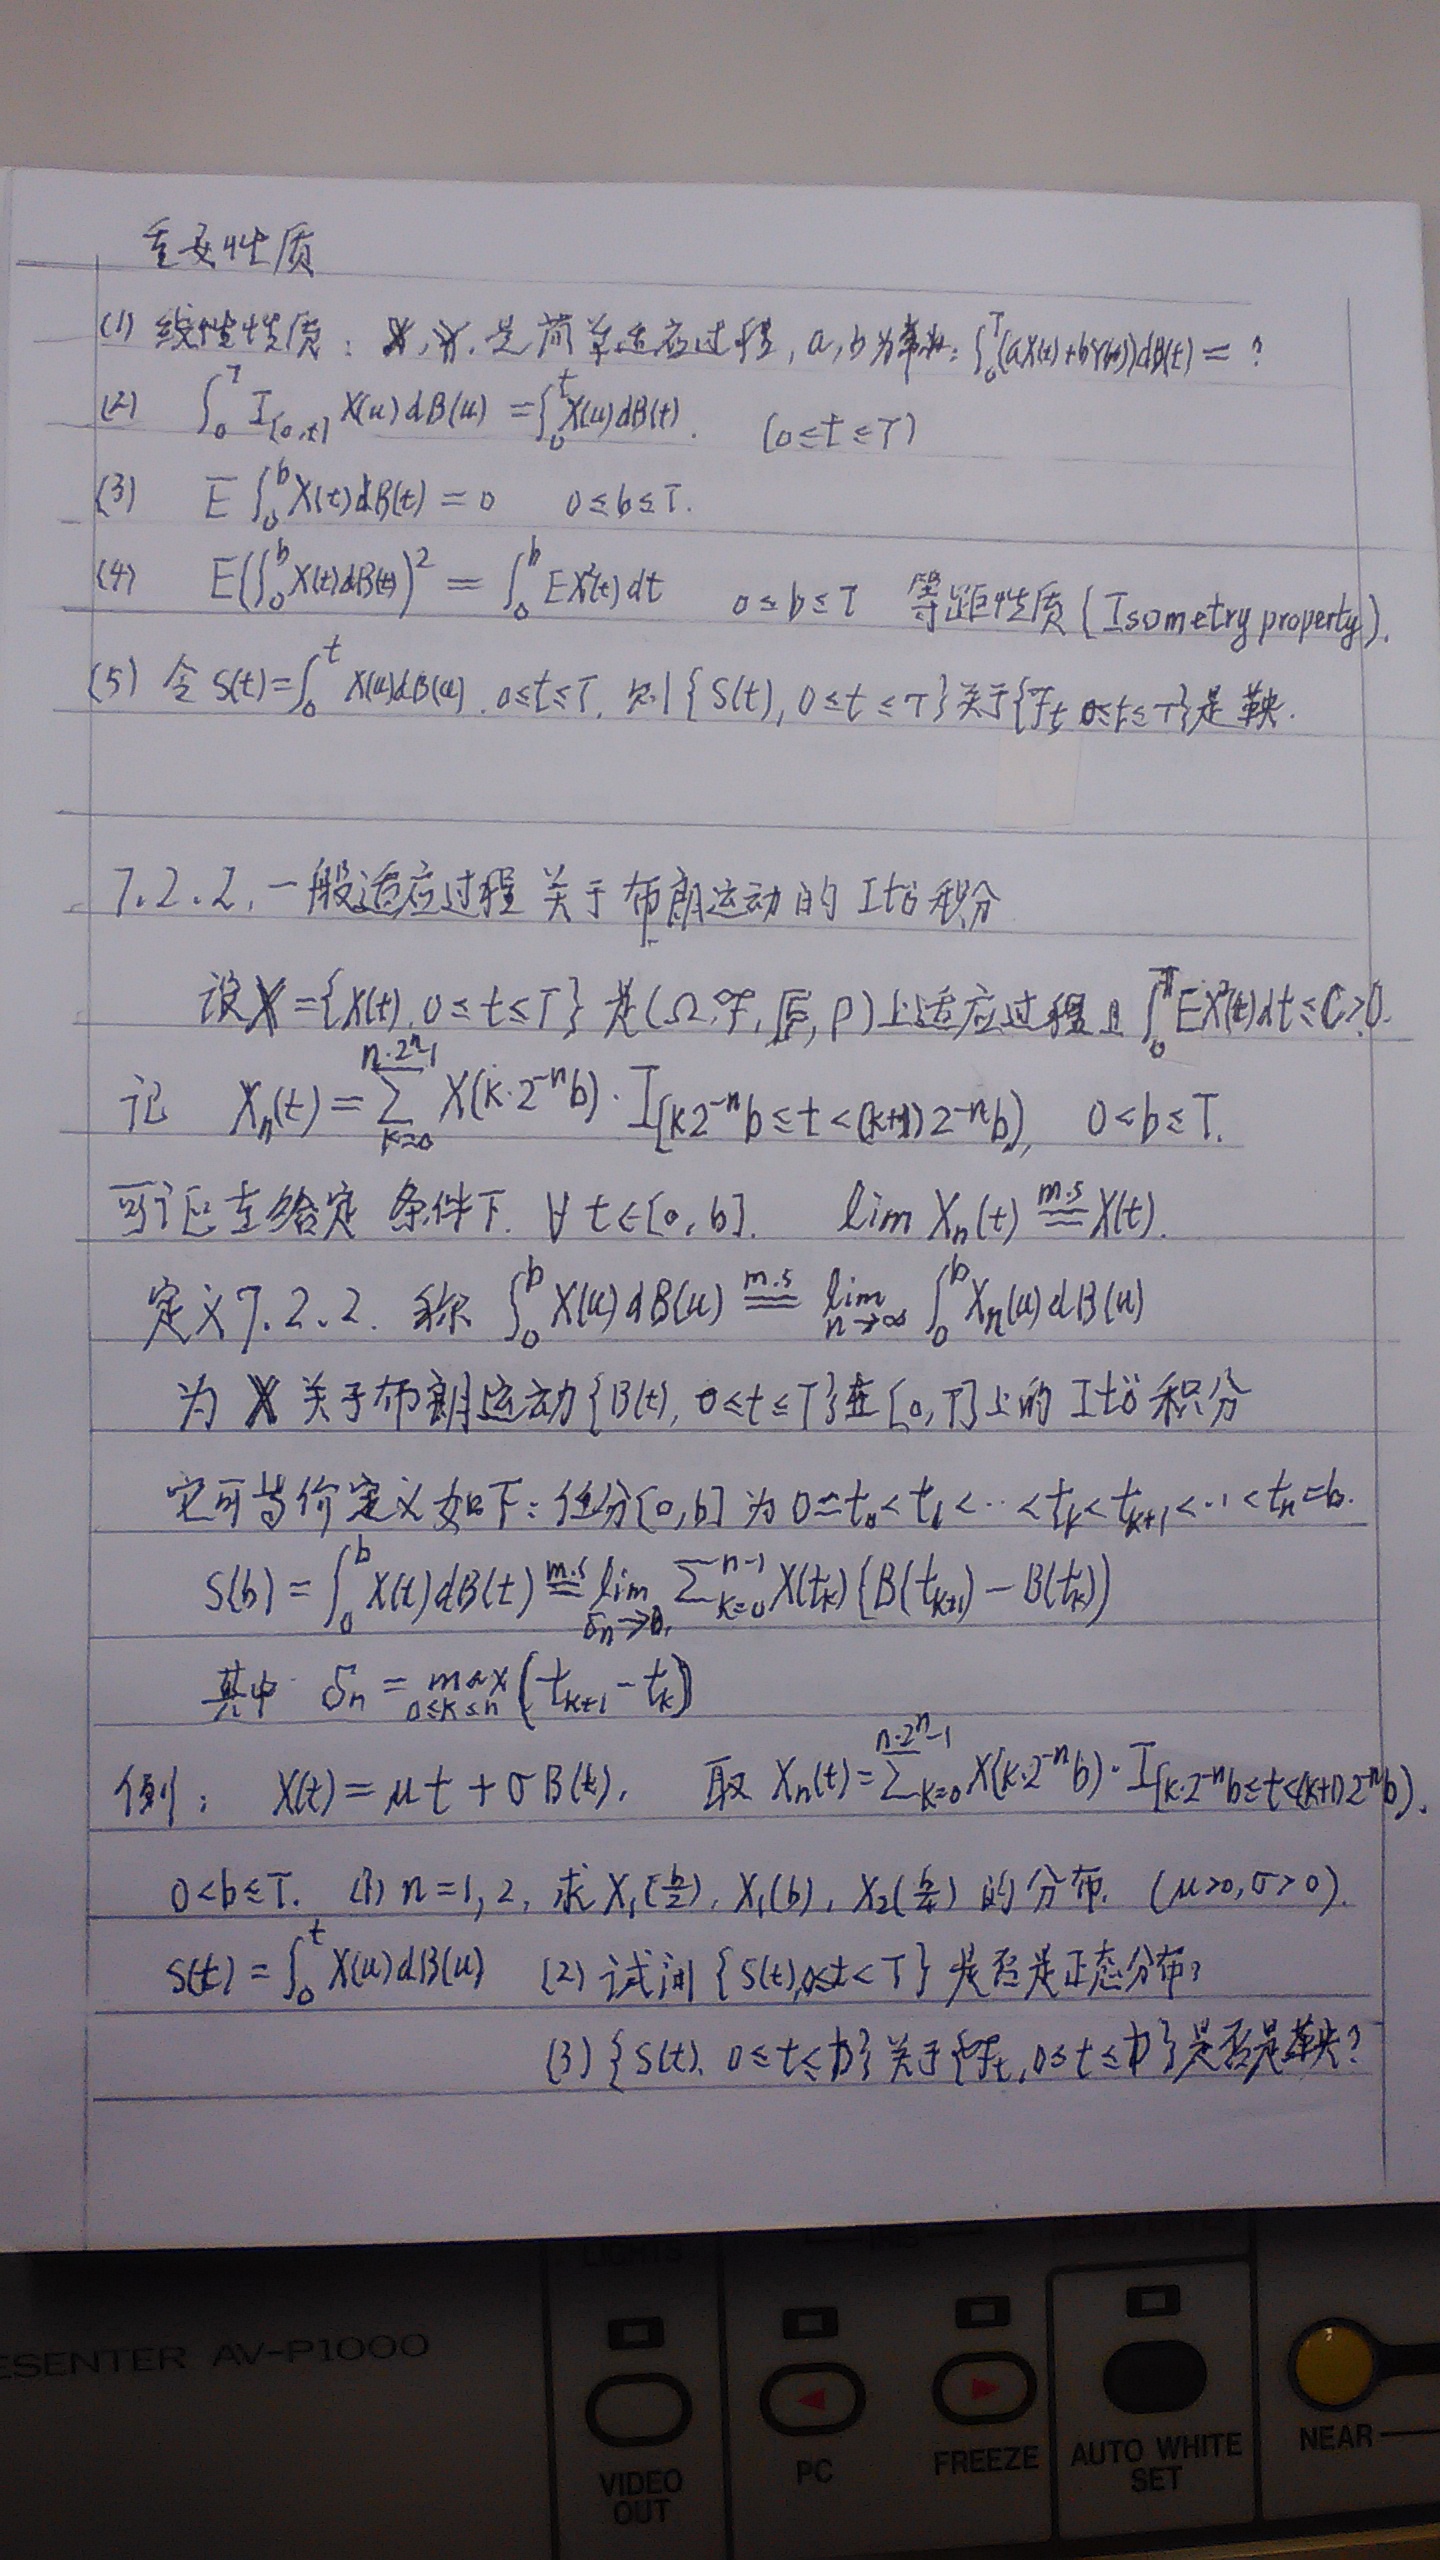 重要性质
(1) 线性性质: X, Y, 是简单适应过程, a, b为常数: ∫₀ᵀ(aX(t)+bY(t))dB(t) = ?
(2) ∫₀ᵀ I_[0,t] X(u)dB(u) = ∫₀ᵗ X(u)dB(t). (0≤t≤T)
(3) E∫₀ᵇ X(t)dB(t) = 0 0≤b≤T.
(4) E(∫₀ᵇ X(t)dB(t))² = ∫₀ᵇ EX²(t)dt 0≤b≤T 等距性质(Isometry property).
(5) 令 S(t)=∫₀ᵗ X(u)dB(u), 0≤t≤T, 则{S(t), 0≤t≤T}关于{ℱt, 0≤t≤T}是鞅.
7.2.2. 一般适应过程关于布朗运动的Itô积分
设X={X(t), 0≤t≤T}是(Ω, ℱ, 𝔽, P)上适应过程且∫₀ᵀ EX²(t)dt≤C>0.
记 Xn(t) = ∑_{k=0}^{n·2ⁿ-1} X(k·2⁻ⁿb)·I_[k2⁻ⁿb≤t<(k+1)2⁻ⁿb), 0<b≤T.
可证在给定条件下. ∀t∈[0,b]. lim Xn(t) \overset{m.s}{=} X(t).
定义7.2.2. 称 ∫₀ᵇ X(u)dB(u) \overset{m.s}{=} lim_{n→∞} ∫₀ᵇ Xn(u)dB(u)
为X关于布朗运动{B(t), 0≤t≤T}在[0,T]上的Itô积分
它可等价定义如下: 任分[0,b]为0=t₀<t₁<··<t_k<t_{k+1}<··<t_n=b.
S(b) = ∫₀ᵇ X(t)dB(t) \overset{m.s}{=} lim_{δn→0} ∑_{k=0}^{n-1} X(t_k){B(t_{k+1}) - B(t_k)}
其中 δn = max_{0≤k≤n}(t_{k+1} - t_k)
例: X(t) = μt + σB(t). 取 Xn(t) = ∑_{k=0}^{n·2ⁿ-1} X(k·2⁻ⁿb)·I_[k·2⁻ⁿb≤t<(k+1)2⁻ⁿb).
0<b≤T. (1) n=1,2, 求X₁(b/2), X₁(b), X₂(b/4)的分布. (μ>0, σ>0).
S(t) = ∫₀ᵗ X(u)dB(u) (2) 试问{S(t), 0≤t<T}是否是正态分布?
(3) {S(t), 0≤t≤b}关于{ℱt, 0≤t≤b}是否是鞅?
ESENTER AV-P1000
LIGHTS
VIDEO OUT
PC
FREEZE
AUTO WHITE SET
NEAR